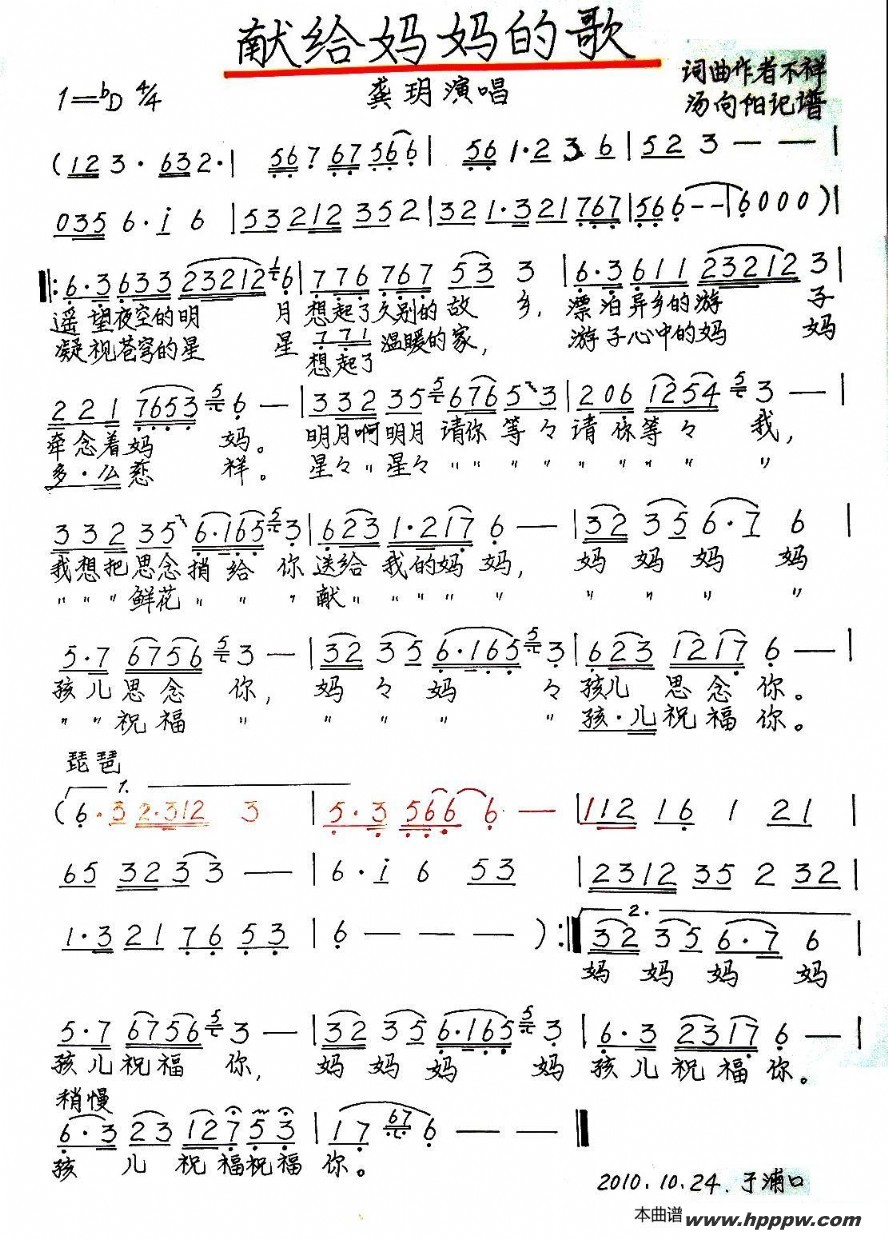 献给妈妈的歌
词曲作者不祥
1=♭D 4/4 龚玥演唱
汤向阳记谱
(123·632·| 567 67566| 561·236|523——|
0356·i6|53212352|321·321767|566——|6000)|
‖:6·3633232126|776767533|6·3611232123|
遥望夜空的明月想起了久别的故乡,漂泊异乡的游子
771
凝视苍穹的星星想起了温暖的家,游子心中的妈妈
221765356—|3323567653|206125453—|
牵念着妈妈。明月啊明月请你等々请你等々我,
多·么慈祥。星々〃星々〃〃〃〃〃〃〃〃
332356·16553|6231·2176—|32356·176|
我想把思念捎给你送给我的妈妈,妈妈妈妈
〃〃〃鲜花〃〃〃献〃〃〃〃〃〃〃〃〃
5·7675653—|32356·16553|62312176—|
孩儿思念你,妈々妈々孩儿思念你。
〃〃祝福〃〃〃〃〃孩·儿祝福你。
琵琶
1.
(6·32·3123|5·35666—|11216121|
653233—|6·i653|231235232|
2.
1·3217653|6———):‖32356·76|
妈妈妈妈
5·7675653—|32356·16553|6·323176—|
孩儿祝福你,妈妈妈妈孩儿祝福你。
稍慢
6·32312753|17676—‖
孩儿祝福祝福你。
2010.10.24.于浦口
本曲谱 www.hpppw.com